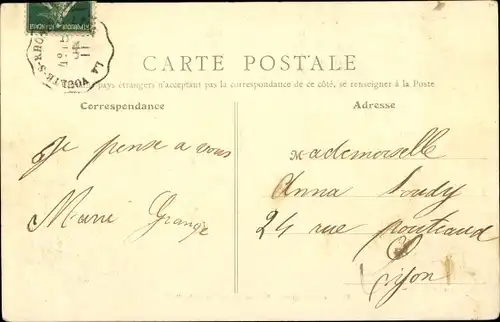 LA VOULTE-S-RHO
CARTE POSTALE
pays étrangers n'acceptant pas la correspondance de ce côté, se renseigner à la Poste
Correspondance
Adresse
Je pense a vous
Marie Grange
Mademoiselle
Anna
24 rue
Lyon